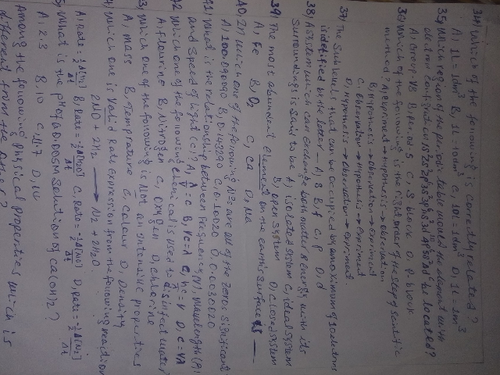 34. Which of the following is correctly related?
A, 1L = 10m³ B, 1L = 100m³ C, 10L = 1dm³ D, 1L = 1dm³
35, Which region of the periodic table would the element with
electron configuration be located?
A, Group VB B, Period 5 C, S block D, P block
36, Which of the following is the right order of the step of scientific
method A, experiment → hypothesis → observation
B, hypothesis → observation → experiment
C, observation → hypothesis → experiment
D, hypothesis → observation → experiment
37, The Sub level that can be occupied by a maximum of electrons
is identified by the letter — A, S B, f C, P D, d
38, A system which can exchange both matter & energy with its
surrounding is is said to be A, isolated system C, ideal system
B, open system D, closed system
39, The most abundant element on the earth surface is —
A, Fe B, O₂ C, Ca D, Na
40, In which one of the following NO are all of the zeros significant
A, 100.09090 B, 0.143290 C, 0.10020 D, 0.0020020
41, What is the relationship between frequency (V) wavelength (λ)
and speed of light (C)?
42, Which one of the following chemical is used to disinfect water
A, flourine B, Nitrogen C, oxygen D, chlorine
43, Which one of the following is Not an intensive properties
A, mass B, Temperature C, colour D, Density
44, Which one is valid rate expression from the following reaction
2NO + 2H₂ → N₂ + 2H₂O
45, What is the pH of a 0.005M solution of Ca(OH)₂?
A, 2.3 B, 10 C, 11.7 D, 12
Among the following physical properties which is
different from the other?